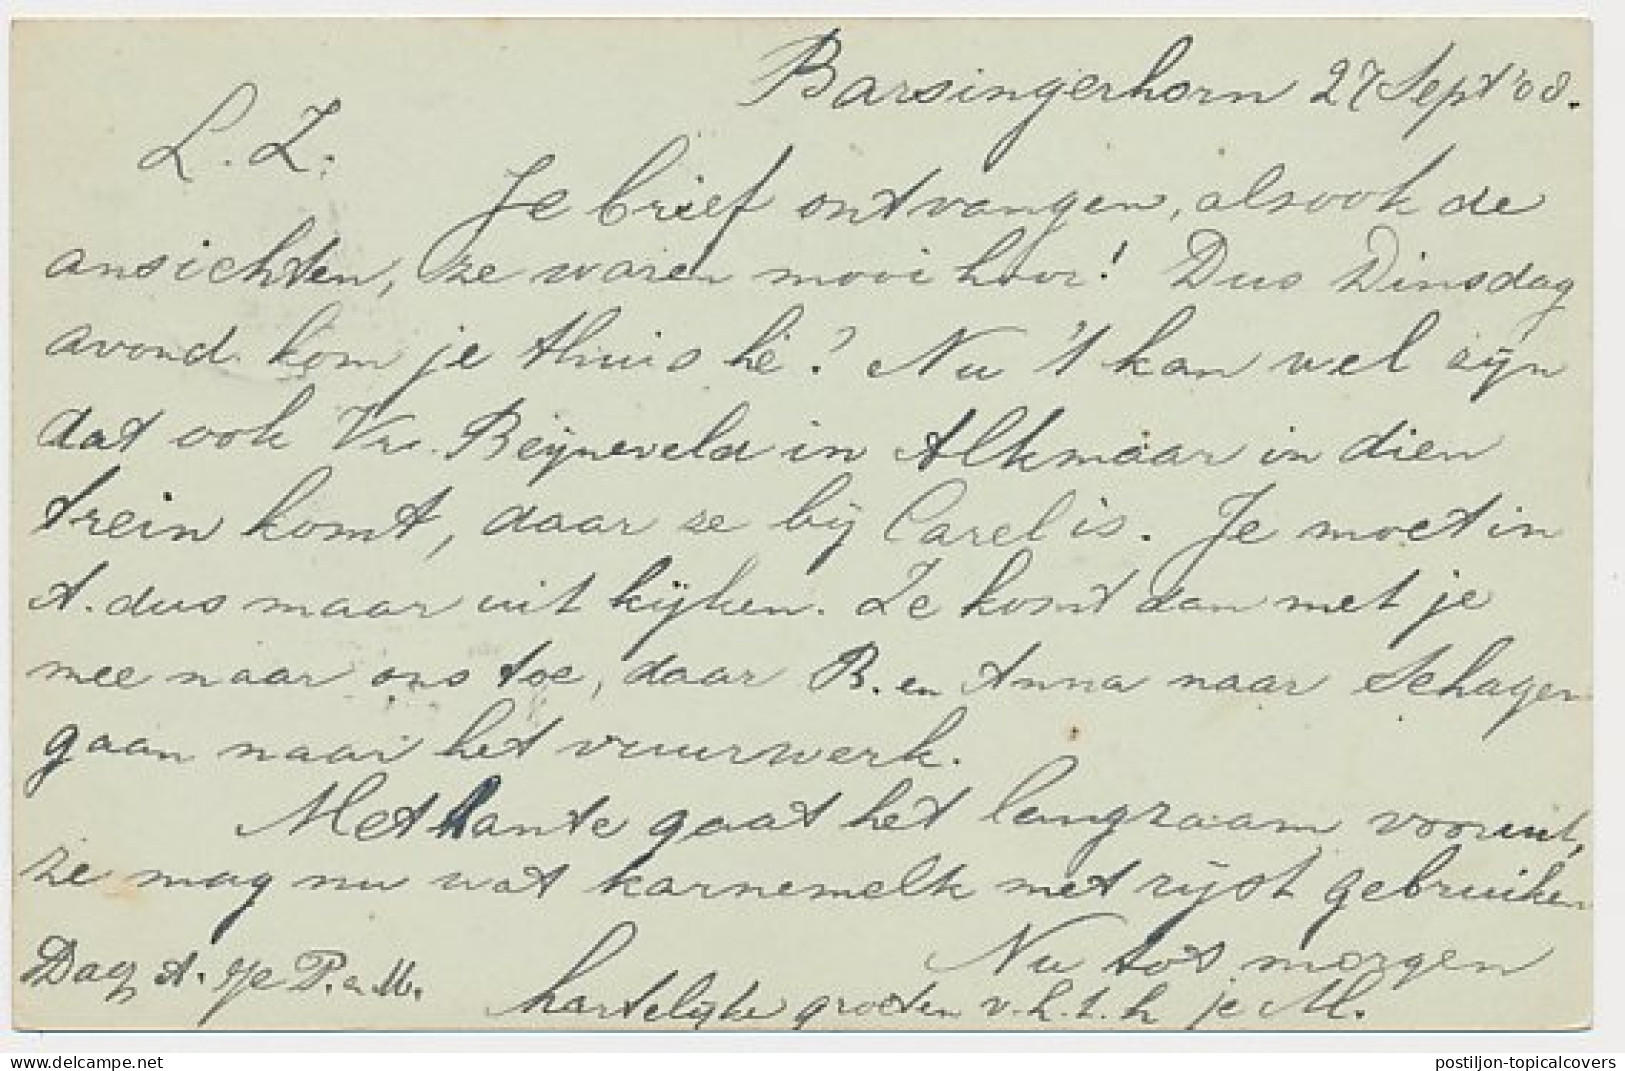 Barsingerhorn 27 Sept '08.
L. Z.
Je brief ontvangen, alsook de
ansichten, ze waren mooi hoor! Dus Dinsdag
avond kom je thuis hè? Nu 't kan wel zijn
dat ook Vr. Beijneveld in Alkmaar in dien
trein komt, daar ze bij Carel is. Je moet in
A. dus maar uit kijken. Ze komt dan met je
mee naar ons toe, daar B. en Anna naar Schagen
gaan naar het vuurwerk.
Met tante gaat het langzaam vooruit,
ze mag nu wat karnemelk met rijst gebruiken
Nu tot morgen
Dag A. je P. a M.
hartelijke groeten v. h. t. h je M.
www.delcampe.net
postiljon-topicalcovers